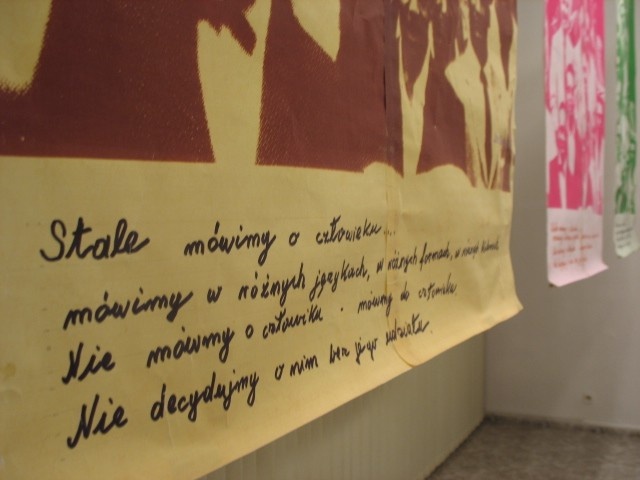 Stale mówimy o człowieku...
mówimy w różnych językach, w różnych formach, w różnych
Nie mówmy o człowieku · mówmy do człowieka.
Nie decydujmy o nim bez jego udziału.